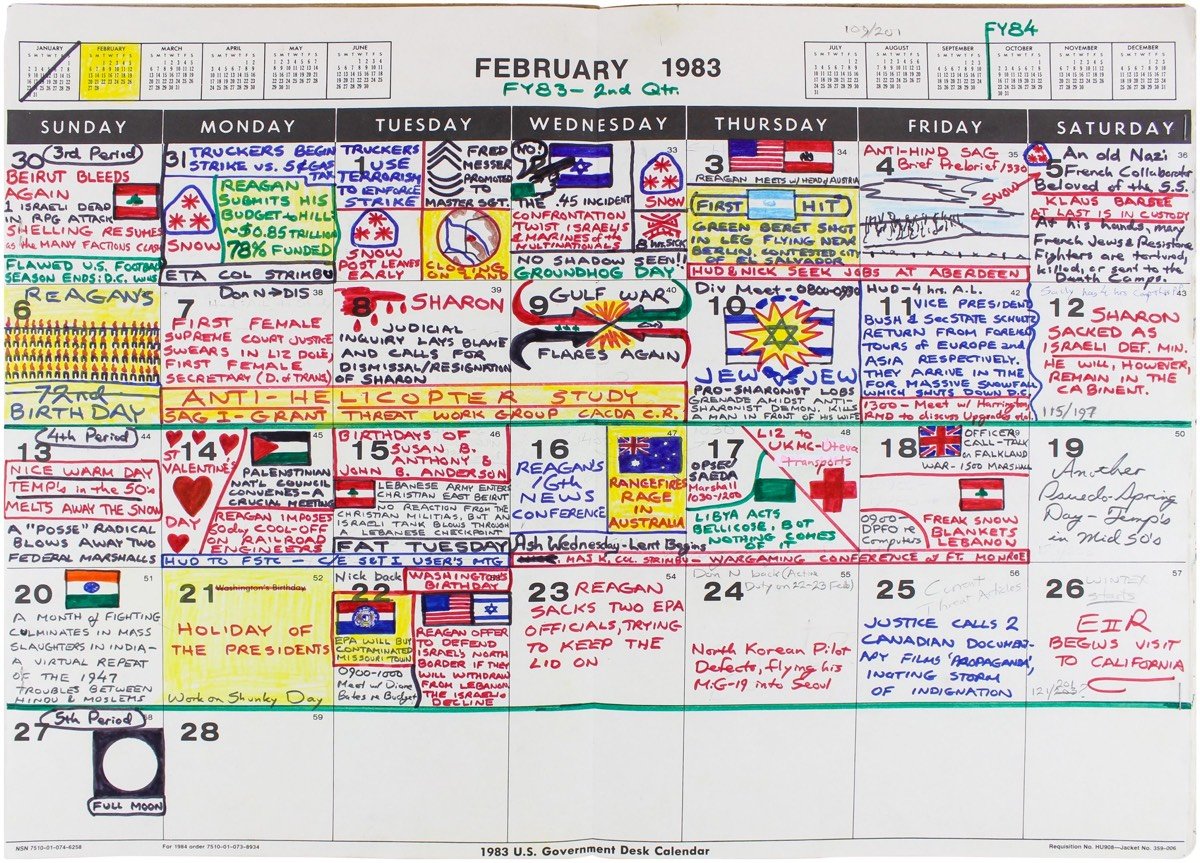 109/201
FY84
JANUARY
FEBRUARY
MARCH
APRIL
MAY
JUNE
FEBRUARY 1983
FY83 - 2nd Qtr.
JULY
AUGUST
SEPTEMBER
OCTOBER
NOVEMBER
DECEMBER
SUNDAY
MONDAY
TUESDAY
WEDNESDAY
THURSDAY
FRIDAY
SATURDAY
30 3rd Period
BEIRUT BLEEDS
AGAIN
1 ISRAELI DEAD
IN RPG ATTACK
SHELLING RESUMES
as the MANY FACTIONS CLASH
FLAWED U.S. FOOTBALL
SEASON ENDS: D.C. WINS
31 TRUCKERS BEGIN
STRIKE VS. 5¢ GAS
TAX
SNOW
REAGAN
SUBMITS HIS
BUDGET to HILL
~$0.85 TRILLION
78% FUNDED
ETA COL STRIMBU
TRUCKERS
1 USE
TERRORISM
TO ENFORCE
STRIKE
SNOW
POST LEAVES
EARLY
FRED
MESSER
PROMOTED
TO
MASTER SGT.
CLOSING
NO!
THE .45 INCIDENT
CONFRONTATION
TWIXT ISRAELIS
& MARINES of the
MULTINATIONALS
33
SNOW
8 hrs. SICK
NO SHADOW SEEN!!
GROUNDHOG DAY
3
34
REAGAN MEETS w/ HEAD of AUSTRIA
FIRST HIT
GREEN BERET SHOT
IN LEG FLYING NEAR
BERLIN, CONTESTED CITY
OF EL SALVADOR
HUD & NICK SEEK JOBS AT ABERDEEN
ANTI-HIND SAG
35
4 Brief Prebrief/1330
SNOW
5 An old Nazi
36
French Collaborator
Beloved of the S.S.
KLAUS BARBEE
AT LAST IS IN CUSTODY
At his hands, many
French Jews & Resistance
Fighters are tortured,
killed, or sent to the
Death Camps.
6 REAGAN'S
72nd
BIRTHDAY
7 Don N → DIS
38
FIRST FEMALE
SUPREME COURT JUSTICE
SWEARS IN LIZ DOLE,
FIRST FEMALE
SECRETARY (D. of TRANS)
8 SHARON
39
JUDICIAL
INQUIRY LAYS BLAME
AND CALLS FOR
DISMISSAL/RESIGNATION
OF SHARON
ANTI-HELICOPTER STUDY
SAG I GRANT
THREAT WORK GROUP CACDA C.R.
9 GULF WAR
40
FLARES AGAIN
Div Meet - 0800-0930
10
JEW vs JEW
PRO-SHARONIST LOBS
GRENADE AMIDST ANTI-
SHARONIST DEMON. KILLS
A MAN IN FRONT OF HIS WIFE
HUD - 4 hrs. A.L.
42
11 VICE PRESIDENT
BUSH & SecSTATE SCHULTZ
RETURN FROM FOREIGN
TOURS OF EUROPE and
ASIA RESPECTIVELY.
THEY ARRIVE IN TIME
FOR MASSIVE SNOWFALL
WHICH SHUTS DOWN D.C.
1300 - Meet w/ Harrington
43
12 SHARON
SACKED AS
ISRAELI DEF. MIN.
HE WILL, HOWEVER,
REMAIN IN THE
CABINENT.
115/197
13 4th Period
44
NICE WARM DAY
TEMP's in the 50's
MELTS AWAY THE SNOW
A "POSSE" RADICAL
BLOWS AWAY TWO
FEDERAL MARSHALLS
14
45
ST
VALENTINE'S
DAY
PALENSTINIAN
NAT'L COUNCIL
CONVENES - A
CRUCIAL MEETING
REAGAN IMPOSES
60 day COOL-OFF
ON RAILROAD
ENGINEERS
HUD TO FSTC - C/E S&TI USER'S MTG
BIRTHDAYS OF
46
15 SUSAN B.
ANTHONY &
JOHN B. ANDERSON
LEBANESE ARMY ENTERS
CHRISTIAN EAST BEIRUT
NO REACTION FROM THE
CHRISTIAN MILITIAS, BUT AN
ISRAELI TANK BLOWS THROUGH
A LEBANESE CHECKPOINT
FAT TUESDAY
16
47
REAGAN'S
16th
NEWS
CONFERENCE
RANGEFIRES
RAGE
IN
AUSTRALIA
Ash Wednesday - Lent Begins
HAS K, COL. STRIMBU - WARGAMING CONFERENCE at FT. MONROE
17 LIZ to
48
UKMC - Uteva
Transports
OPSEC
SAEDA
Marshall
1030-1200
LIBYA ACTS
BELLICOSE, BUT
NOTHING COMES
OF IT
18
OFFICER
CALL - TALK
ON FALKLAND
WAR - 1500 MARSHALL
0900-
DPFO re
Computers
FREAK SNOW
BLANKETS
LEBANON
19
50
Another
Psuedo-Spring
Day - Temp's
in Mid 50's
20
51
A MONTH OF FIGHTING
CULMINATES IN MASS
SLAUGHTERS IN INDIA -
A VIRTUAL REPEAT
OF THE 1947
TROUBLES BETWEEN
HINDU & MOSLEMS
21 Washington's Birthday
52
HOLIDAY OF
THE PRESIDENTS
Work on Shunky Day
Nick back
22
WASHINGTON'S
BIRTHDAY
EPA WILL BUY
CONTAMINATED
MISSOURI TOWN
0900-1000
Meet w/ Diane
Bates re Budget
REAGAN OFFER
TO DEFEND
ISRAEL'S NORTH
BORDER IF THEY
WILL WITHDRAW
FROM LEBANON
THE ISRAELIS
DECLINE
23 REAGAN
54
SACKS TWO EPA
OFFICIALS, TRYING
TO KEEP THE
LID ON
Don N back (Active
55
Duty on 22-23 Feb)
24
North Korean Pilot
Defects, flying his
MiG-19 into Seoul
25
56
Threat Articles
JUSTICE CALLS 2
CANADIAN DOCUMENT-
ARY FILMS 'PROPAGANDA',
INCITING STORM
OF INDIGNATION
26 WINTEX
57
starts
EIIR
BEGINS VISIT
TO CALIFORNIA
27 5th Period
58
FULL MOON
28
59
NSN 7510-01-074-6258
For 1984 order 7510-01-073-8934
1983 U.S. Government Desk Calendar
Requisition No. HU908—Jacket No. 359-006